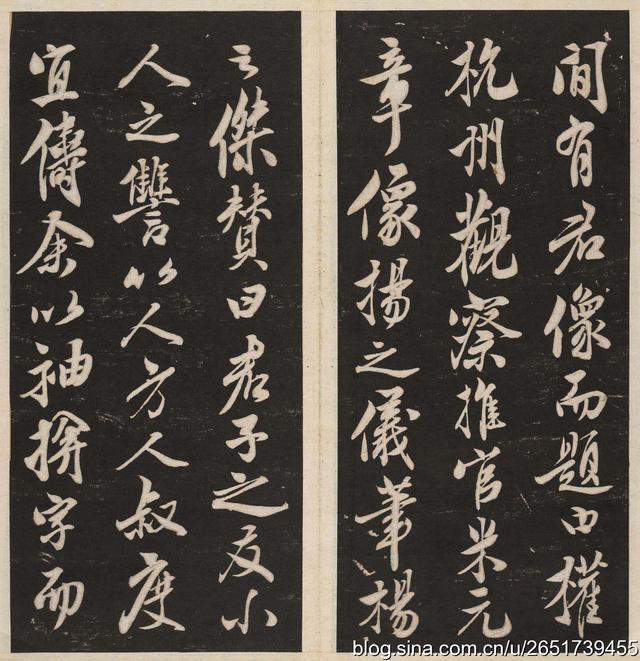 間有君像而題曰權
杭州觀察推官米元
章像揚之儀筆楊
之傑贊曰君子之友小
人之讐以人方人叔度
宜儔余以袖字而
blog.sina.com.cn/u/2651739455